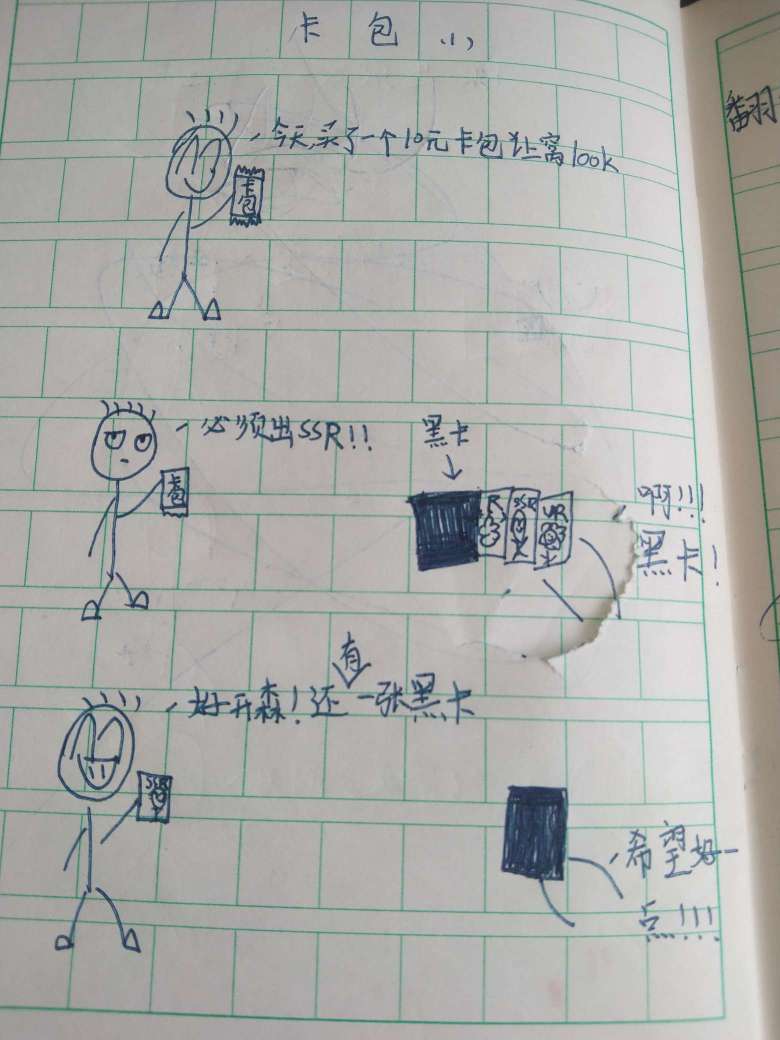 卡包小
今天买了一个10元卡包让离100k
卡包
必须出SSR!!
卡包
黑卡
R SSR UR
啊!!!
黑卡!
有
好开森!还一张黑卡
SSR
希望好一
点!!!
翻